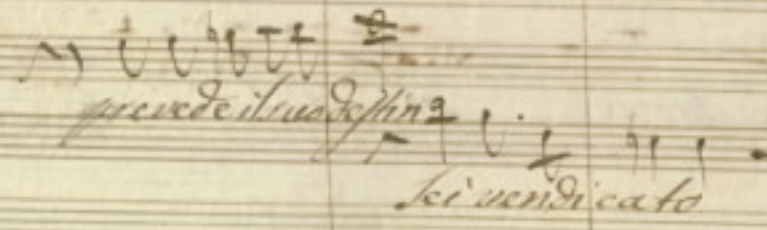 prevede il suo destin
sei uendicato